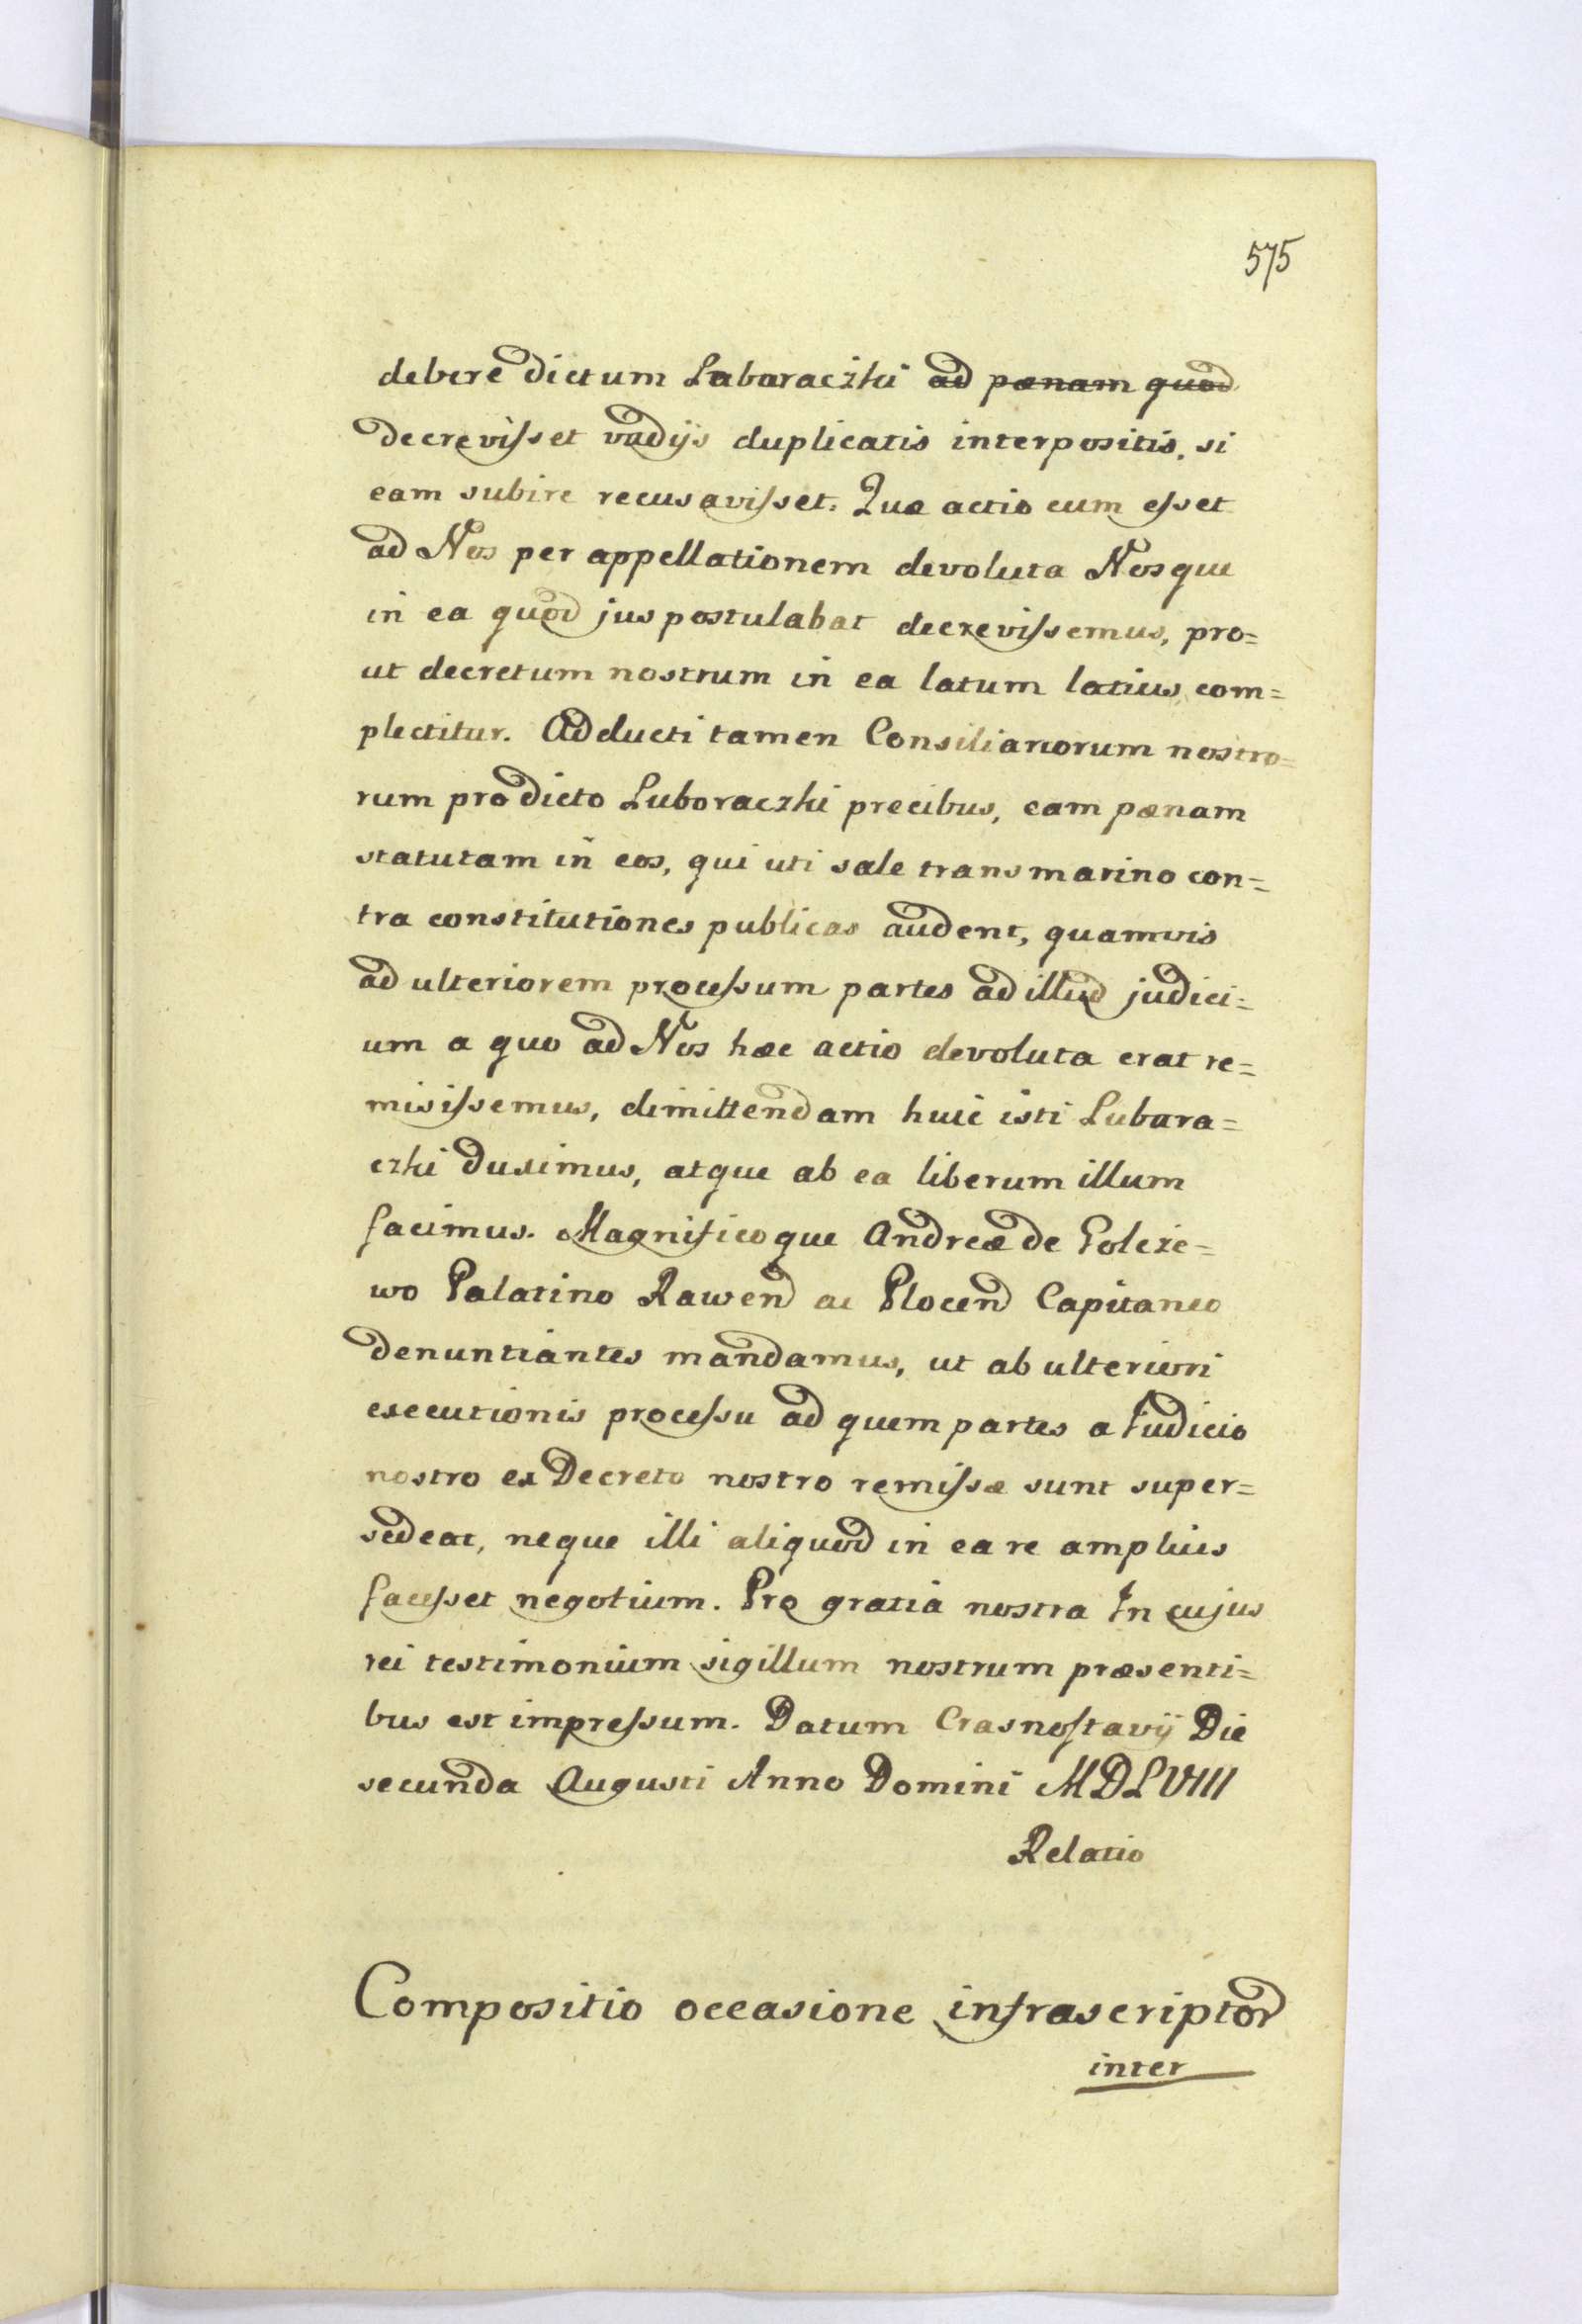 575
debere dictum Laboraczki ad pænam quod
decrevisset vadijs duplicatis interpositis, si
eam subire recusavisset. Quæ actio cum esset
ad Nos per appellationem devoluta Nosque
in ea quod jus postulabat decrevissemus, pro=
ut decretum nostrum in ea latum latius com=
plectitur. Adducti tamen Consiliariorum nostro=
rum pro dicto Luboraczki precibus, eam pænam
statutam in eos, qui uti sale transmarino con=
tra constitutiones publicas audent, quamvis
ad ulteriorem processum partes ad illud judici=
um a quo ad Nos hæc actio devoluta erat re=
misissemus, dimittendam huic isti Lubora=
czki duximus, atque ab ea liberum illum
facimus. Magnificoque Andreæ de Goleze=
wo Palatino Rawen ac Plocen Capitaneo
denuntiantes mandamus, ut ab ulteriori
executionis processu ad quem partes a Iudicio
nostro ex Decreto nostro remissæ sunt super=
sedeat, neque illi aliquod in ea re amplius
facesset negotium. Pro gratia nostra In cujus
rei testimonium sigillum nostrum præsenti=
bus est impressum. Datum Crasnostavij Die
secunda Augusti Anno Domini MDLVIII
Relatio
Compositio occasione infrascriptor
inter